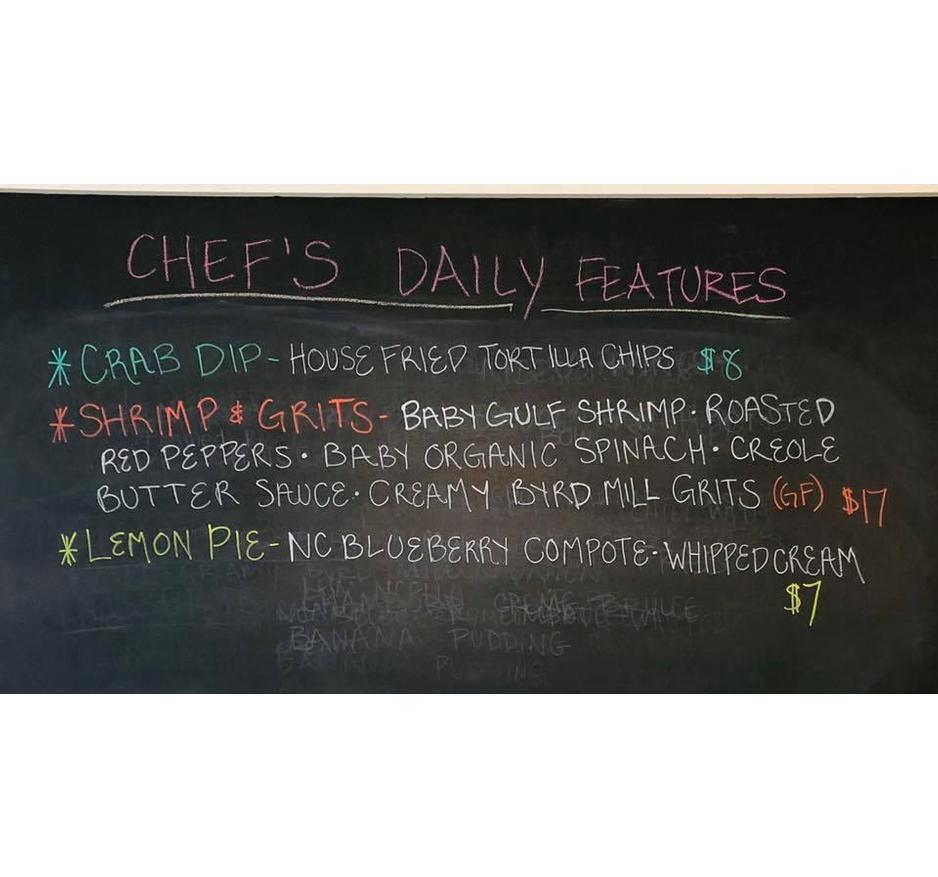 CHEF'S DAILY FEATURES
* CRAB DIP - HOUSE FRIED TORTILLA CHIPS $8
* SHRIMP & GRITS - BABY GULF SHRIMP · ROASTED
RED PEPPERS · BABY ORGANIC SPINACH · CREOLE
BUTTER SAUCE · CREAMY BYRD MILL GRITS (GF) $17
* LEMON PIE - NC BLUEBERRY COMPOTE · WHIPPED CREAM
$7
BANANA PUDDING
BANANA PUDDING